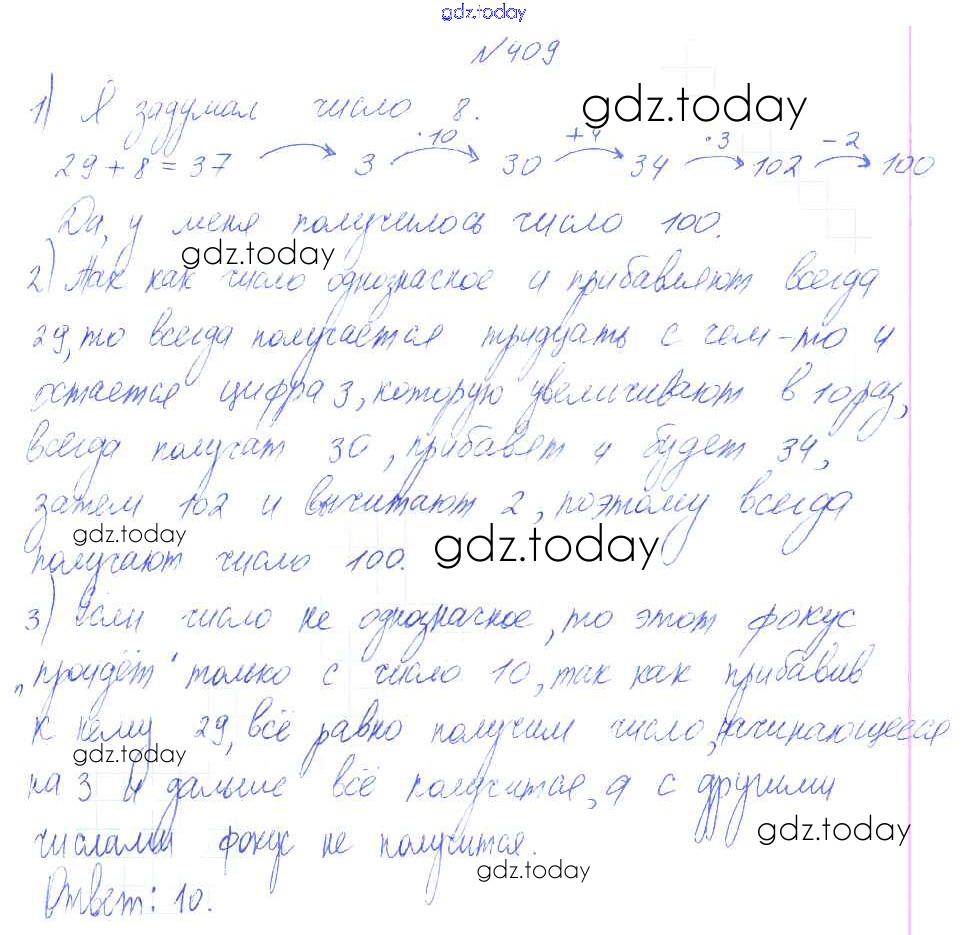 gdz.today
№ 409
1) Я задумал число 8. gdz.today
29 + 8 = 37 → 3 →·10 30 →+4 34 →·3 102 →−2 100
Да, у меня получилось число 100.
gdz.today
2) Так как число однозначное и прибавляют всегда
29, то всегда получается тридцать с чем-то и
остаётся цифра 3, которую увеличивают в 10 раз,
всегда получат 30, прибавят 4 будет 34,
затем 102 и вычитают 2, поэтому всегда
gdz.today gdz.today
получают число 100.
3) Если число не однозначное, то этот фокус
„пройдёт" только с число 10, так как прибавив
к нему 29, всё равно получим число, начинающееся
gdz.today
на 3 и дальше всё получится, а с другими
gdz.today
числами фокус не получится.
gdz.today
Ответ: 10.